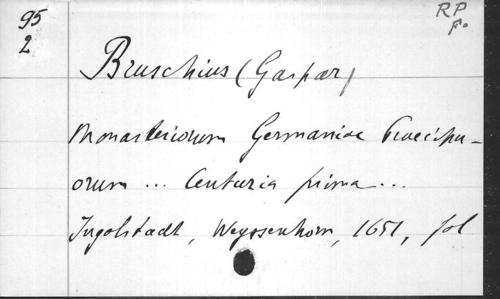 95
2
RP
F.
Bruschius (Gaspar)
Monasteriorum Germaniae Praecipu-
orum ... Centuria prima ...
Ingolstadt, Weyssenhorn, 1651, fol